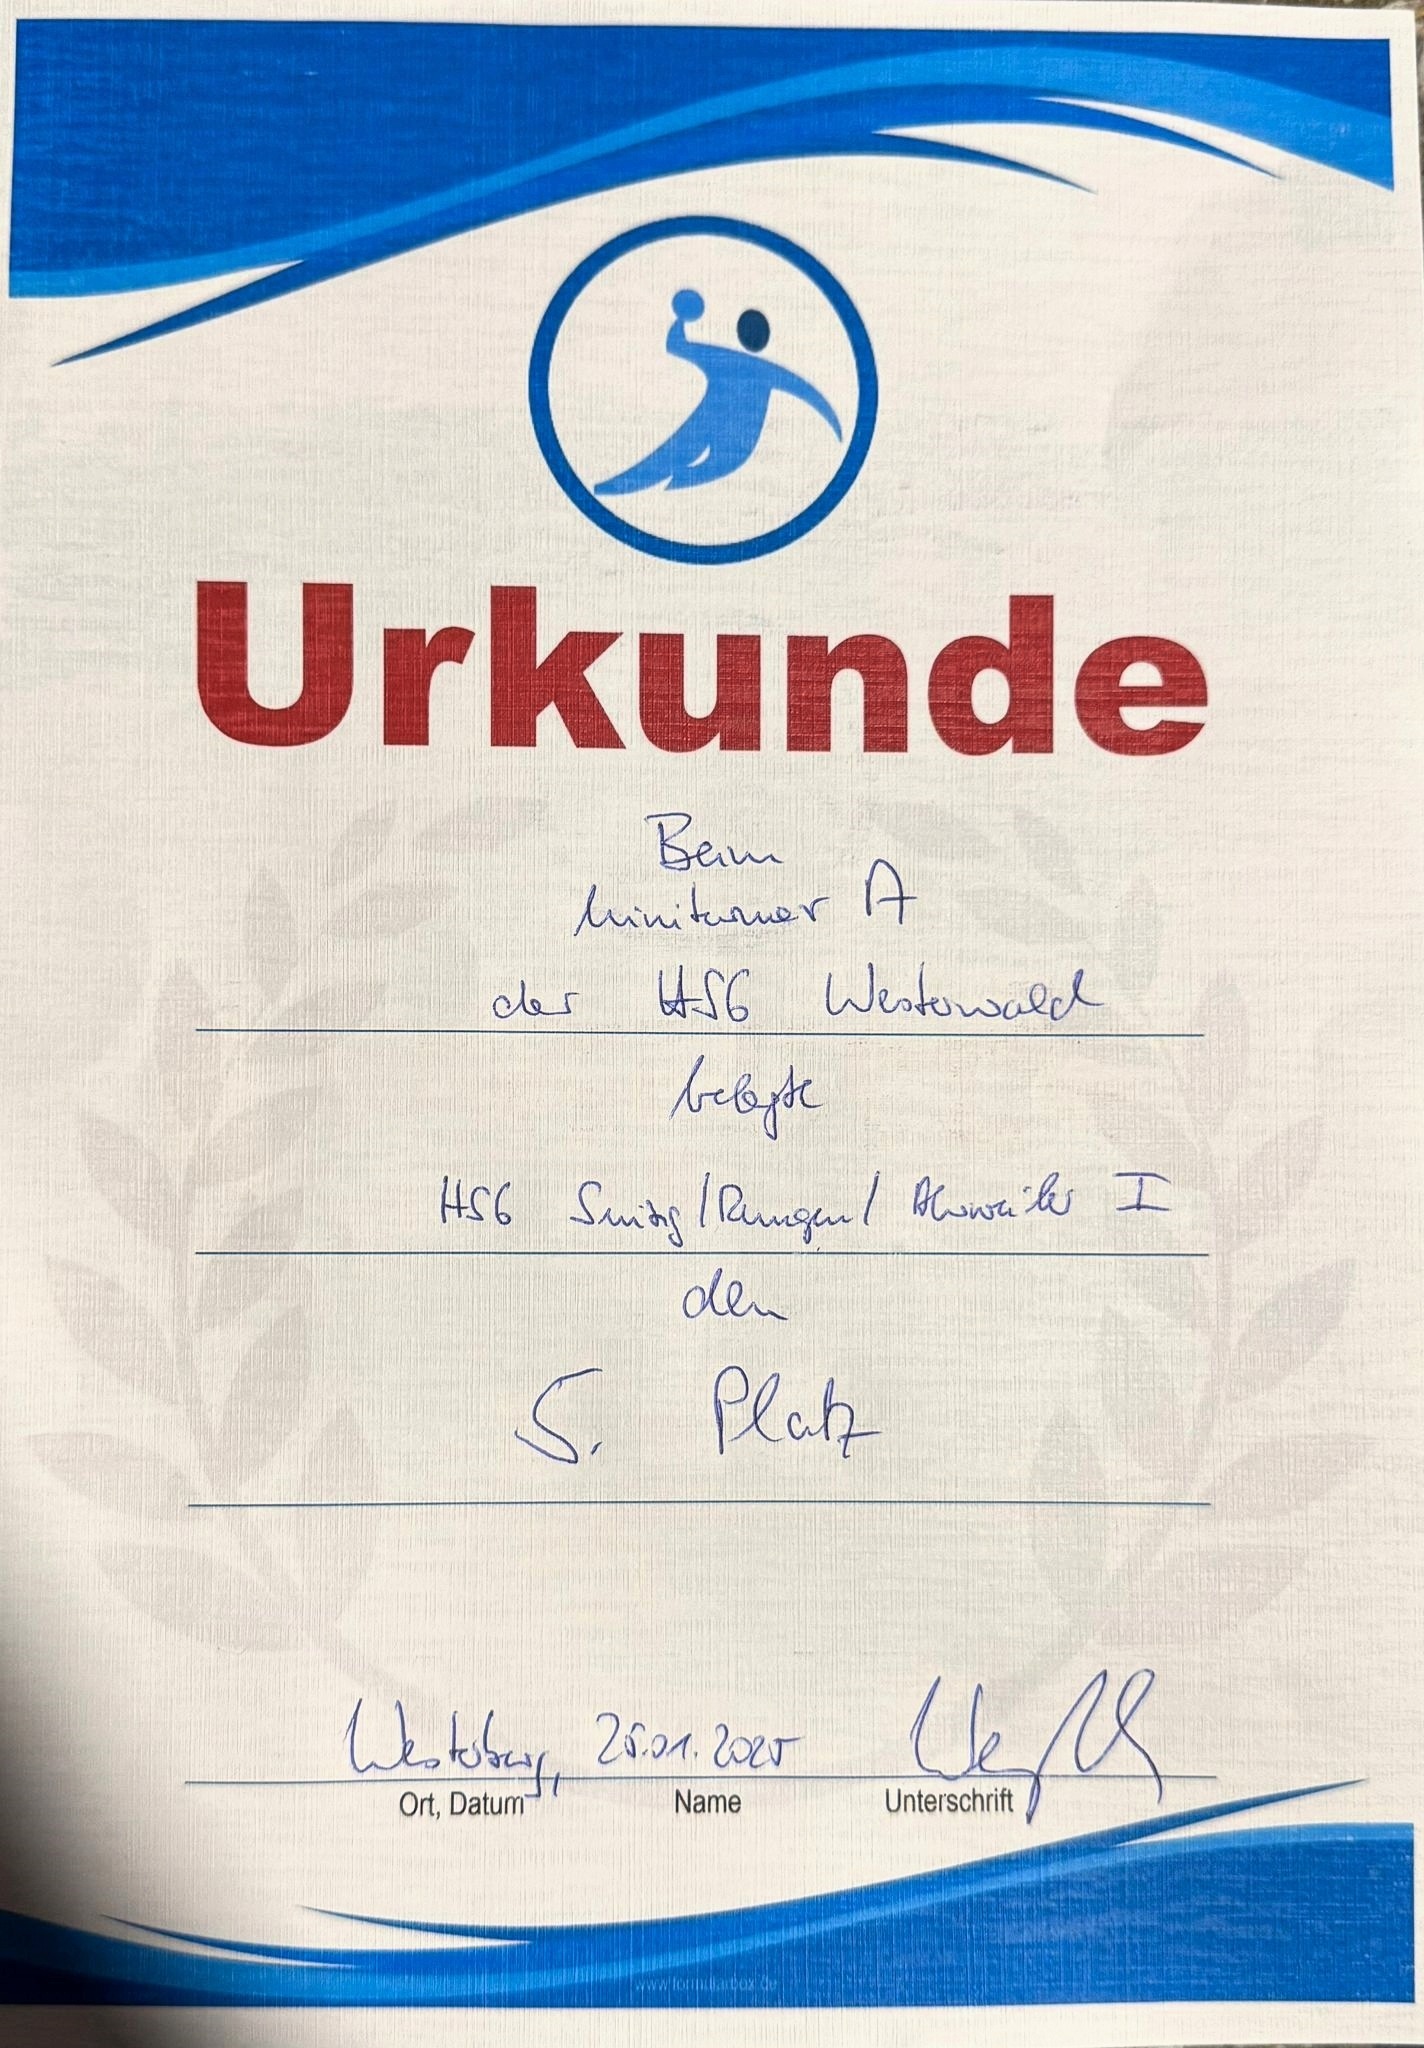 Urkunde
Beim
Miniturnier A
der HSG Westerwald
belegte
HSG Sinzig/Remagen/Ahrweiler I
den
5. Platz
Westerburg, 25.01.2025
Ort, Datum Name Unterschrift
www.formularbox.de